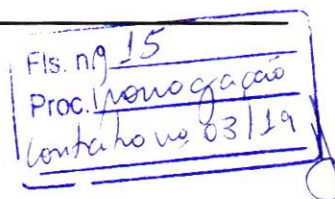 Fls. nº 15
Proc. Prorrogação
Contrato nº 03/19